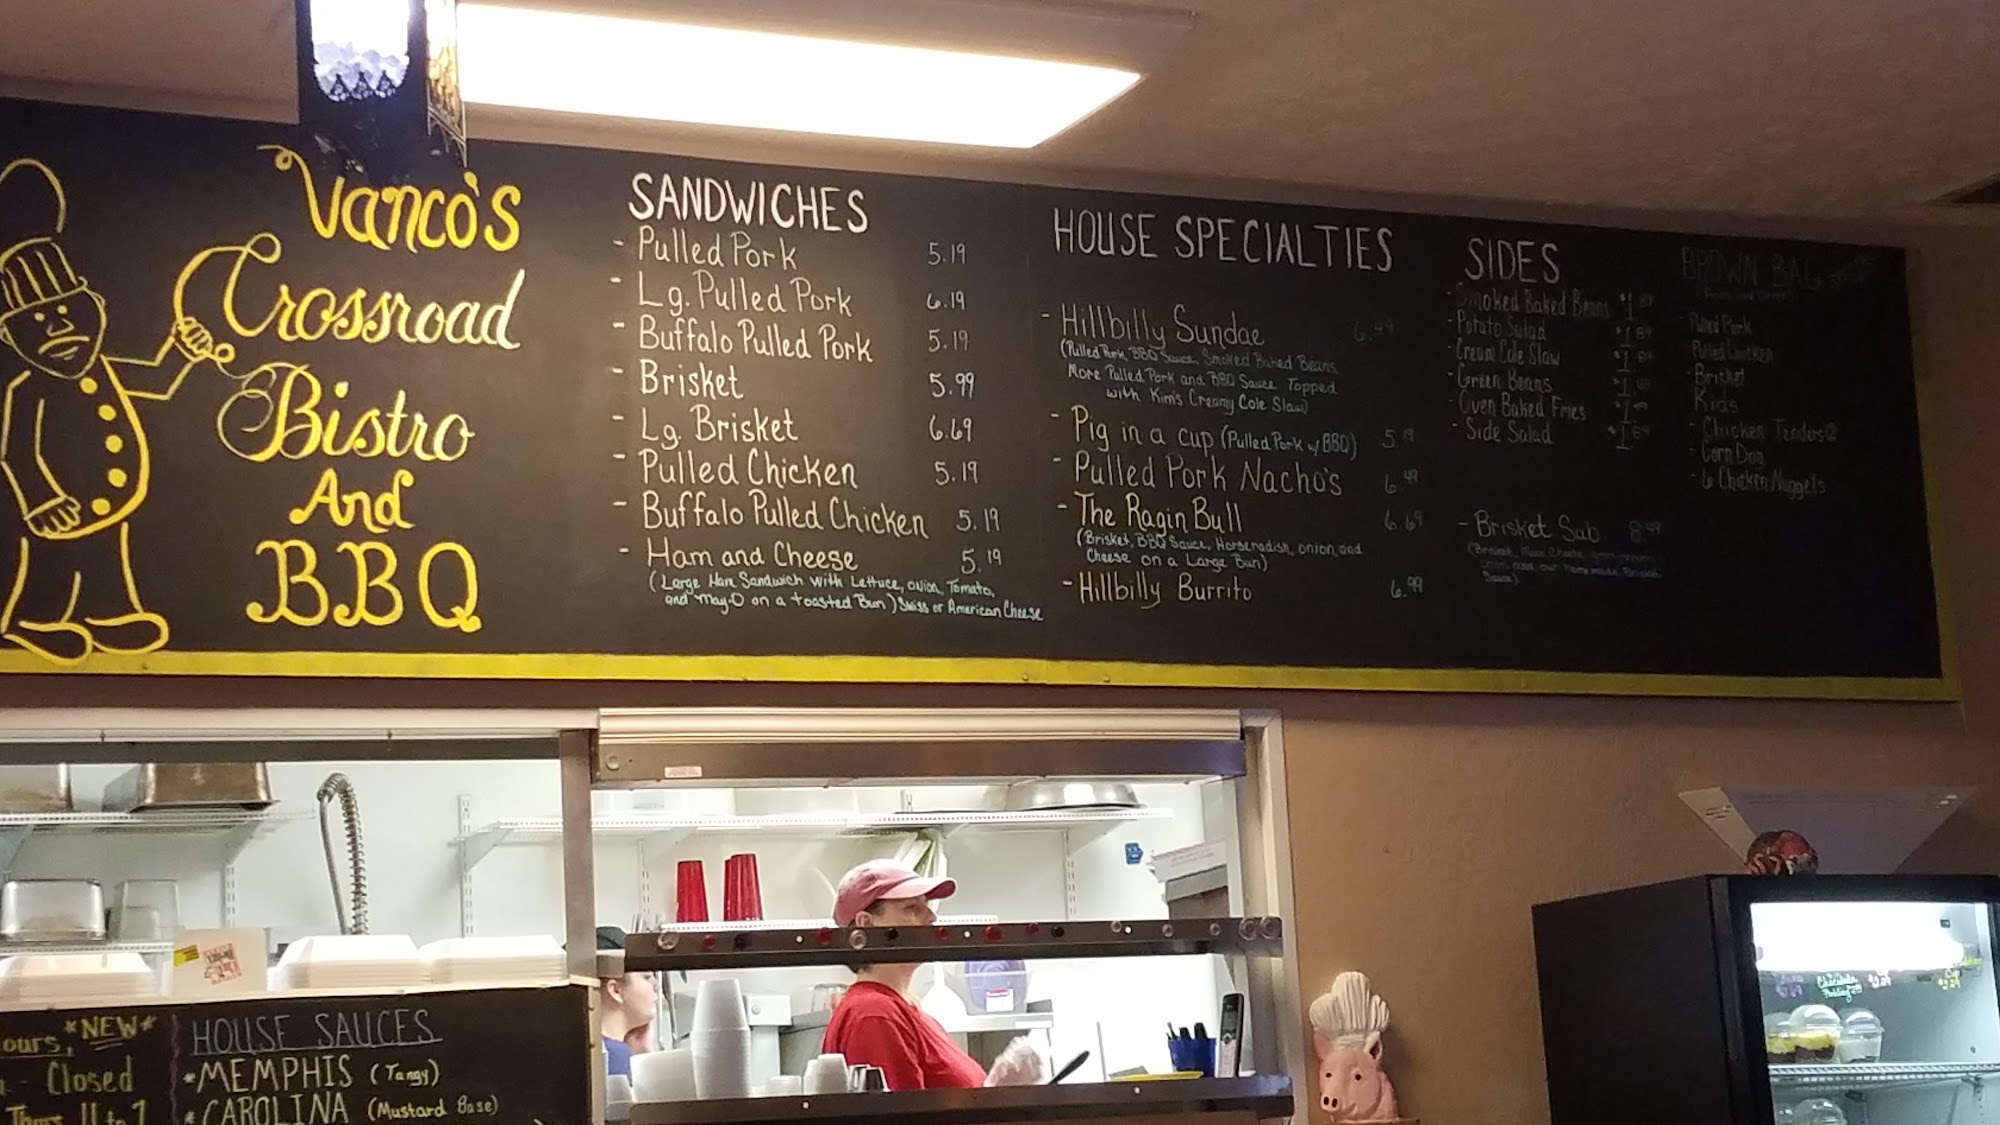 Vanco's
Crossroad
Bistro
And
BBQ
SANDWICHES
- Pulled Pork 5.19
- Lg. Pulled Pork 6.19
- Buffalo Pulled Pork 5.19
- Brisket 5.99
- Lg. Brisket 6.69
- Pulled Chicken 5.19
- Buffalo Pulled Chicken 5.19
- Ham and Cheese 5.19
(Large Ham Sandwich with Lettuce, onion, Tomato,
and May-O on a toasted Bun) Swiss or American Cheese
HOUSE SPECIALTIES
- Hillbilly Sundae 6.49
(Pulled Pork, BBQ Sauce, Smoked Baked Beans
More Pulled Pork and BBQ Sauce Topped
with Kim's Creamy Cole Slaw)
- Pig in a cup (Pulled Pork w/ BBQ) 5.19
- Pulled Pork Nacho's 6.49
- The Ragin Bull 6.69
(Brisket, BBQ Sauce, Horseradish, onion, and
Cheese on a Large Bun)
- Hillbilly Burrito 6.99
SIDES
- Smoked Baked Beans $1.89
- Potato Salad $1.89
- Cream Cole Slaw $1.89
- Green Beans $1.89
- Oven Baked Fries $1
- Side Salad $1.89
- Brisket Sub 8.49
Sauce)
BROWN BAG
- Pulled Pork
- Pulled Chicken
- Brisket
Kids
- Chicken Tenders
- Corn Dog
- 6 Chicken Nuggets
ours, *NEW*
- Closed
Thurs 11 to 7
HOUSE SAUCES
*MEMPHIS (Tangy)
*CAROLINA (Mustard Base)
Chocolate
Pudding